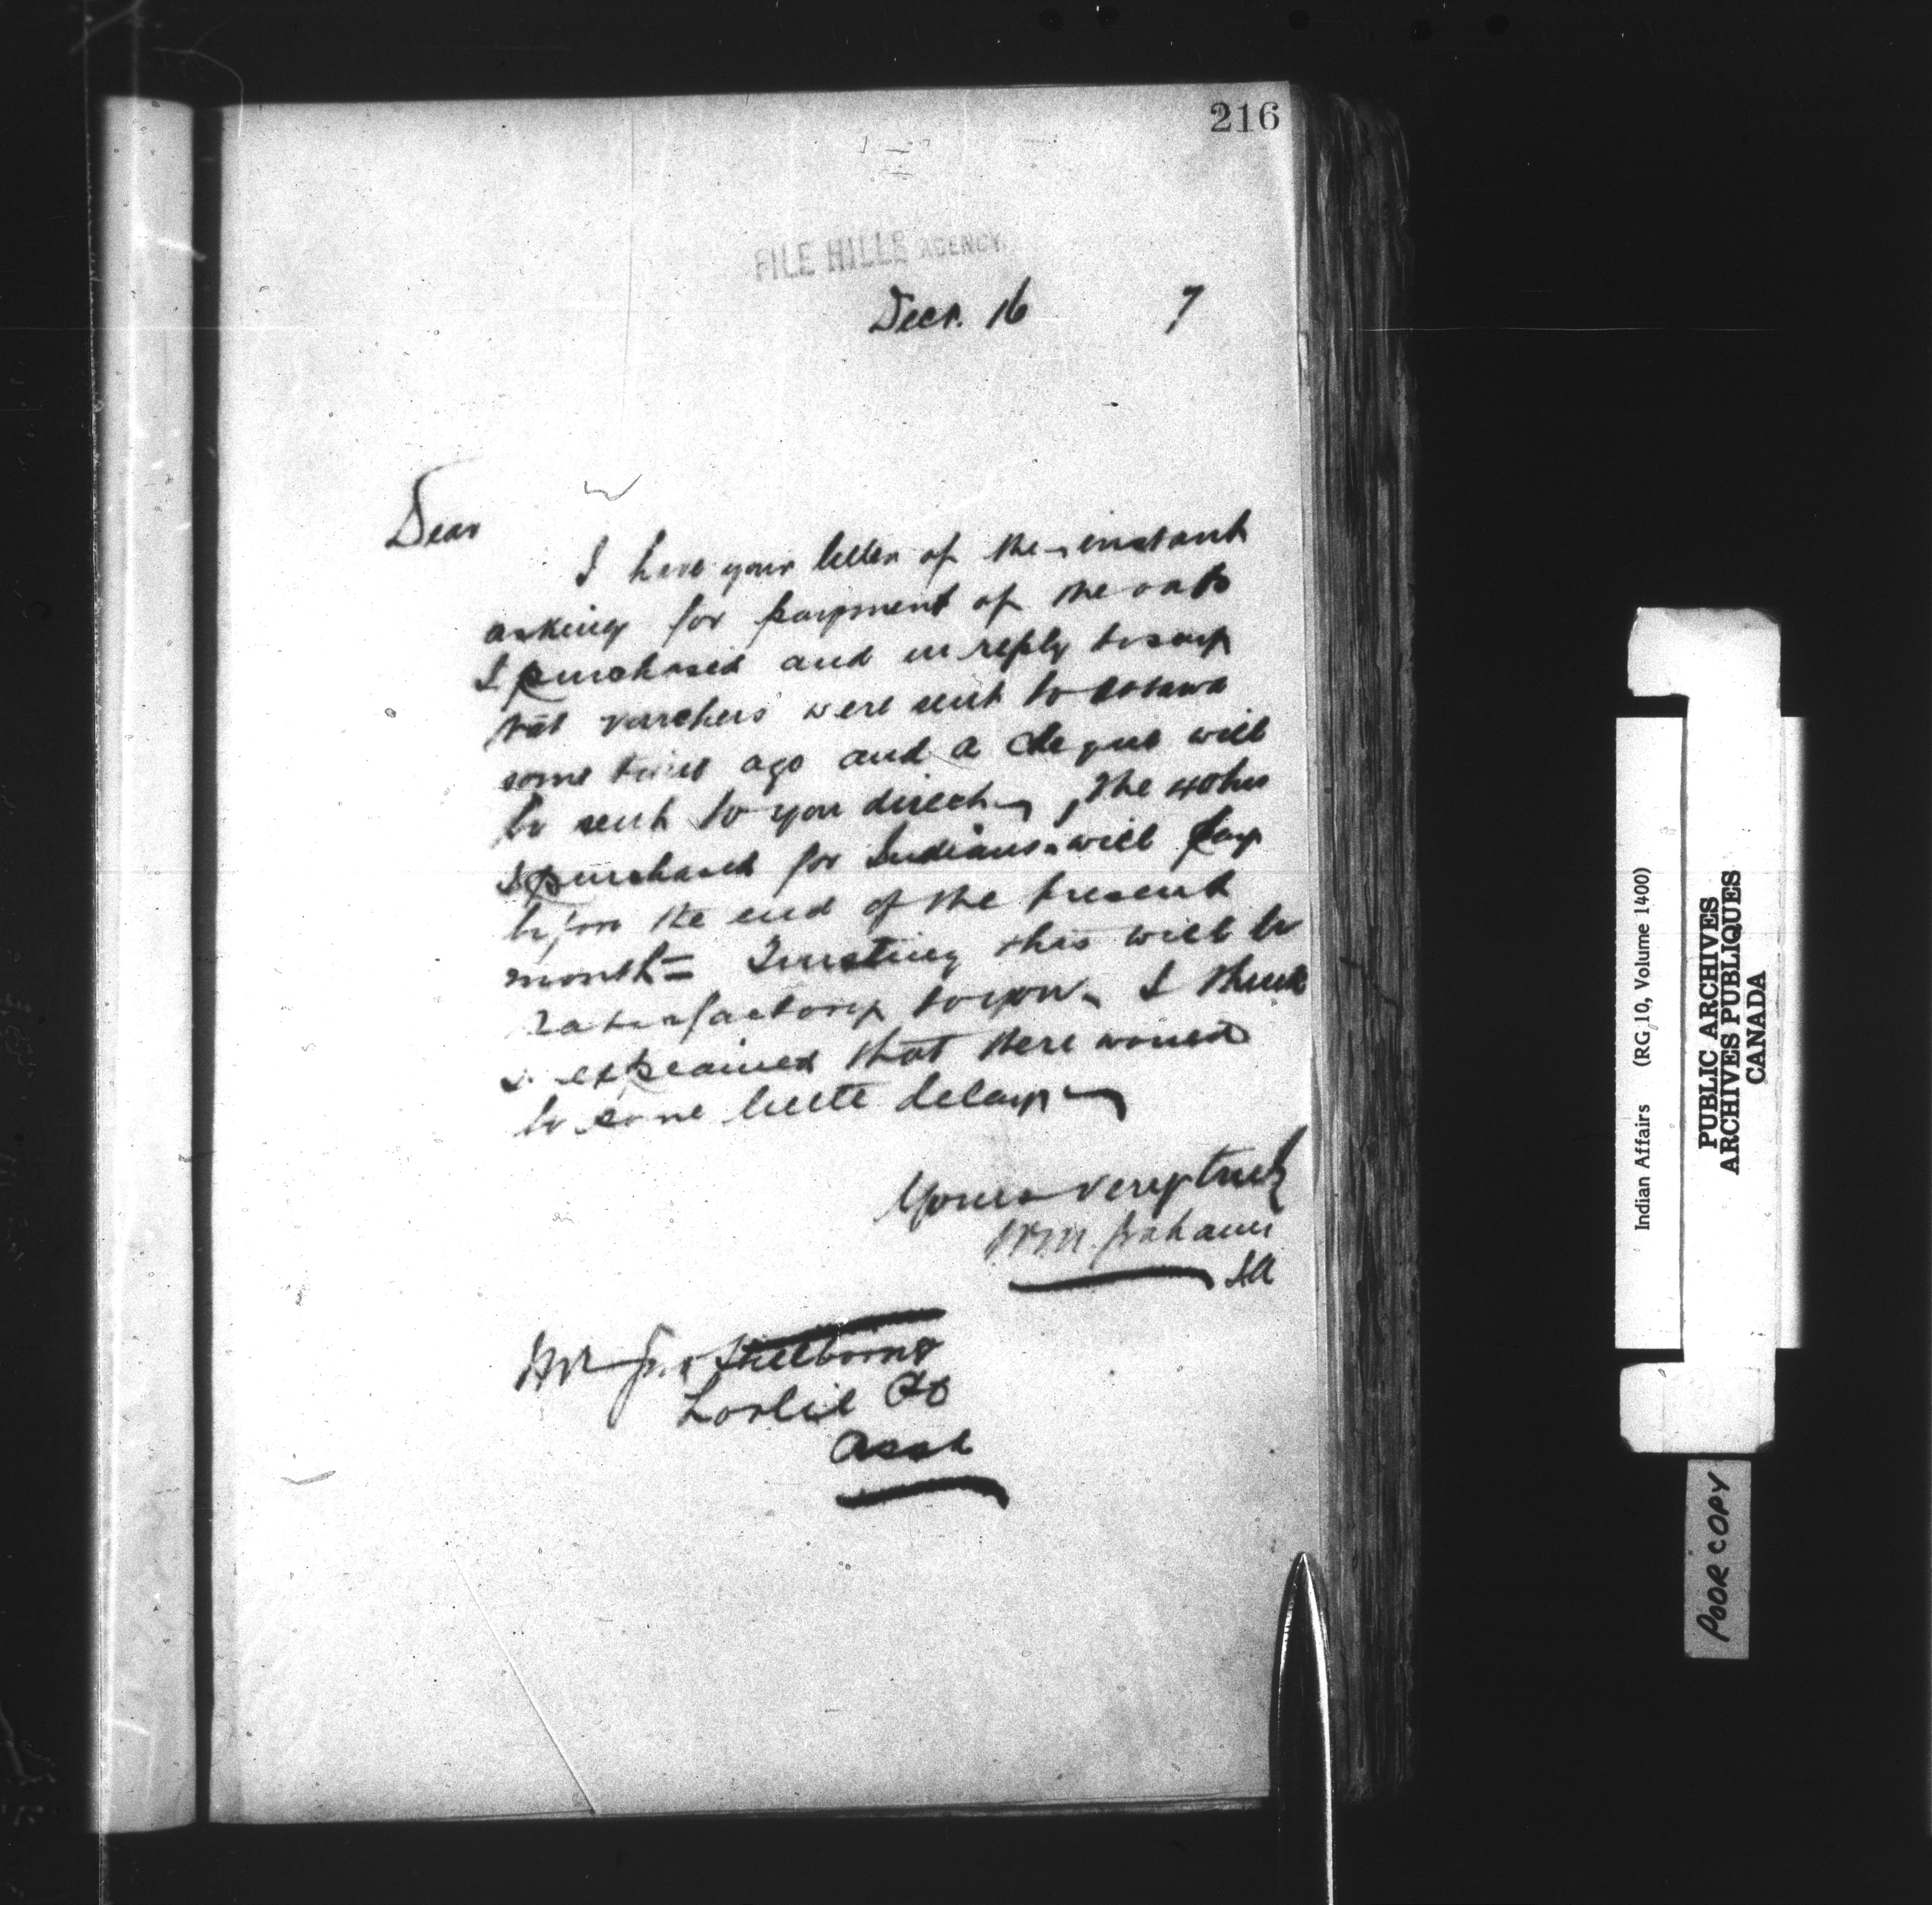 216
FILE HILLS AGENCY
Decr. 16 7
Dear
I have your letter of the instant
asking for payment of the oats
I purchased and in reply to say
that vouchers were sent to Ottawa
some time ago and a cheque will
be sent to you direct, The 40 bus
I purchased for Indians will pay
before the end of the present
month = Trusting this will be
satisfactory to you. I think
I explained that there would
be some little delay
Yours very truly
W M. Graham
IA
Mr
Lorlie PO
Assa
Indian Affairs (RG 10, Volume 1400)
PUBLIC ARCHIVES
ARCHIVES PUBLIQUES
CANADA
POOR COPY